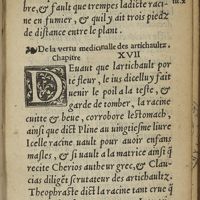 bre, & faulx que trempes ladicte raci-
ne en fumier, & quil y ait trois piedz
de distance entre le plant.
De la vertu medicinalle des artichaultz,
Chapitre XVII
DEuaut que lartichault por
te fleur, le ius dicelluy fait
uenir le poil a la teste, &
garde de tomber, la racine
cuitte & beue, corrobore lestomach,
ainsi que dict Pline au uingtiesme liure
Icelle racine uault pour auoir enfans
masles, & si uault a la matrice ainsi q̃
recite Cherios autheur grec, & Clau-
cias diligẽt scrutateur des artichaultz.
Theophraste dict la racine tant crue q̃